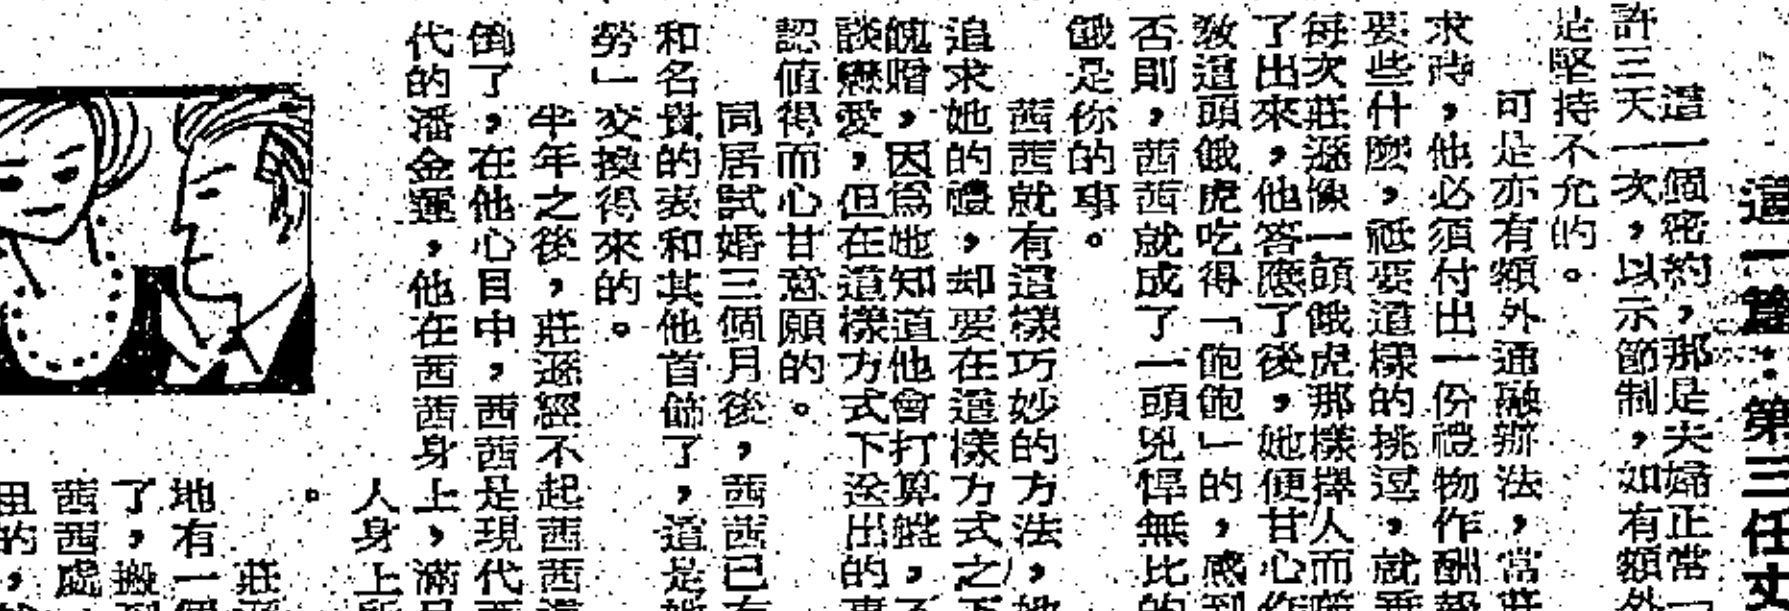 這一篇：第三任丈
這一個密約，那是夫婦正常一
許三天一次，以示節制，如有額外
是堅持不允的。
可是亦有額外通融辦法，當莊
求時，他必須付出一份禮物作酬報
要些什麼，祗要這樣的挑逗，就要
每次莊遜像一頭餓虎那樣擇人而
了出來，他答應了後，她便甘心作
教這頭餓虎吃得「飽飽」的，感到
否則，茜茜就成了一頭兇悍無比的
餓是你的事。
茜茜就有這樣巧妙的方法，她
追求她的禮，却要在這樣方式之下
餽贈，因爲她知道他會打算盤，不
談戀愛，但在這樣方式下送出的
認値得而心甘意願的。
同居試婚三個月後，茜茜已有
和名貴的表和其他首飾了，這是她
勞」交換得來的。
半年之後，莊遜經不起茜茜這
倒了，在他心目中，茜茜是現代
代的潘金蓮，他在茜茜身上，滿
人身上所
。
莊遜
地有一個
了，搬到
茜茜處
的，